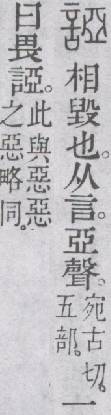 䛩 相毀也。从言。亞聲。宛古切。五部。一
曰畏䛩。此與惡惡之惡略同。